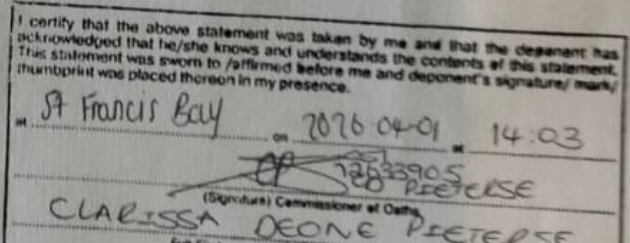 I certify that the above statement was taken by me and that the deponent has
acknowledged that he/she knows and understands the contents of this statement.
This statement was sworn to /affirmed before me and deponent's signature/ mark/
thumbprint was placed thereon in my presence.
at St Francis Bay on 2026-04-01 at 14:03
PIETERSE
(Signature) Commissioner of Oaths
CLARISSA DEONE PIETERSE